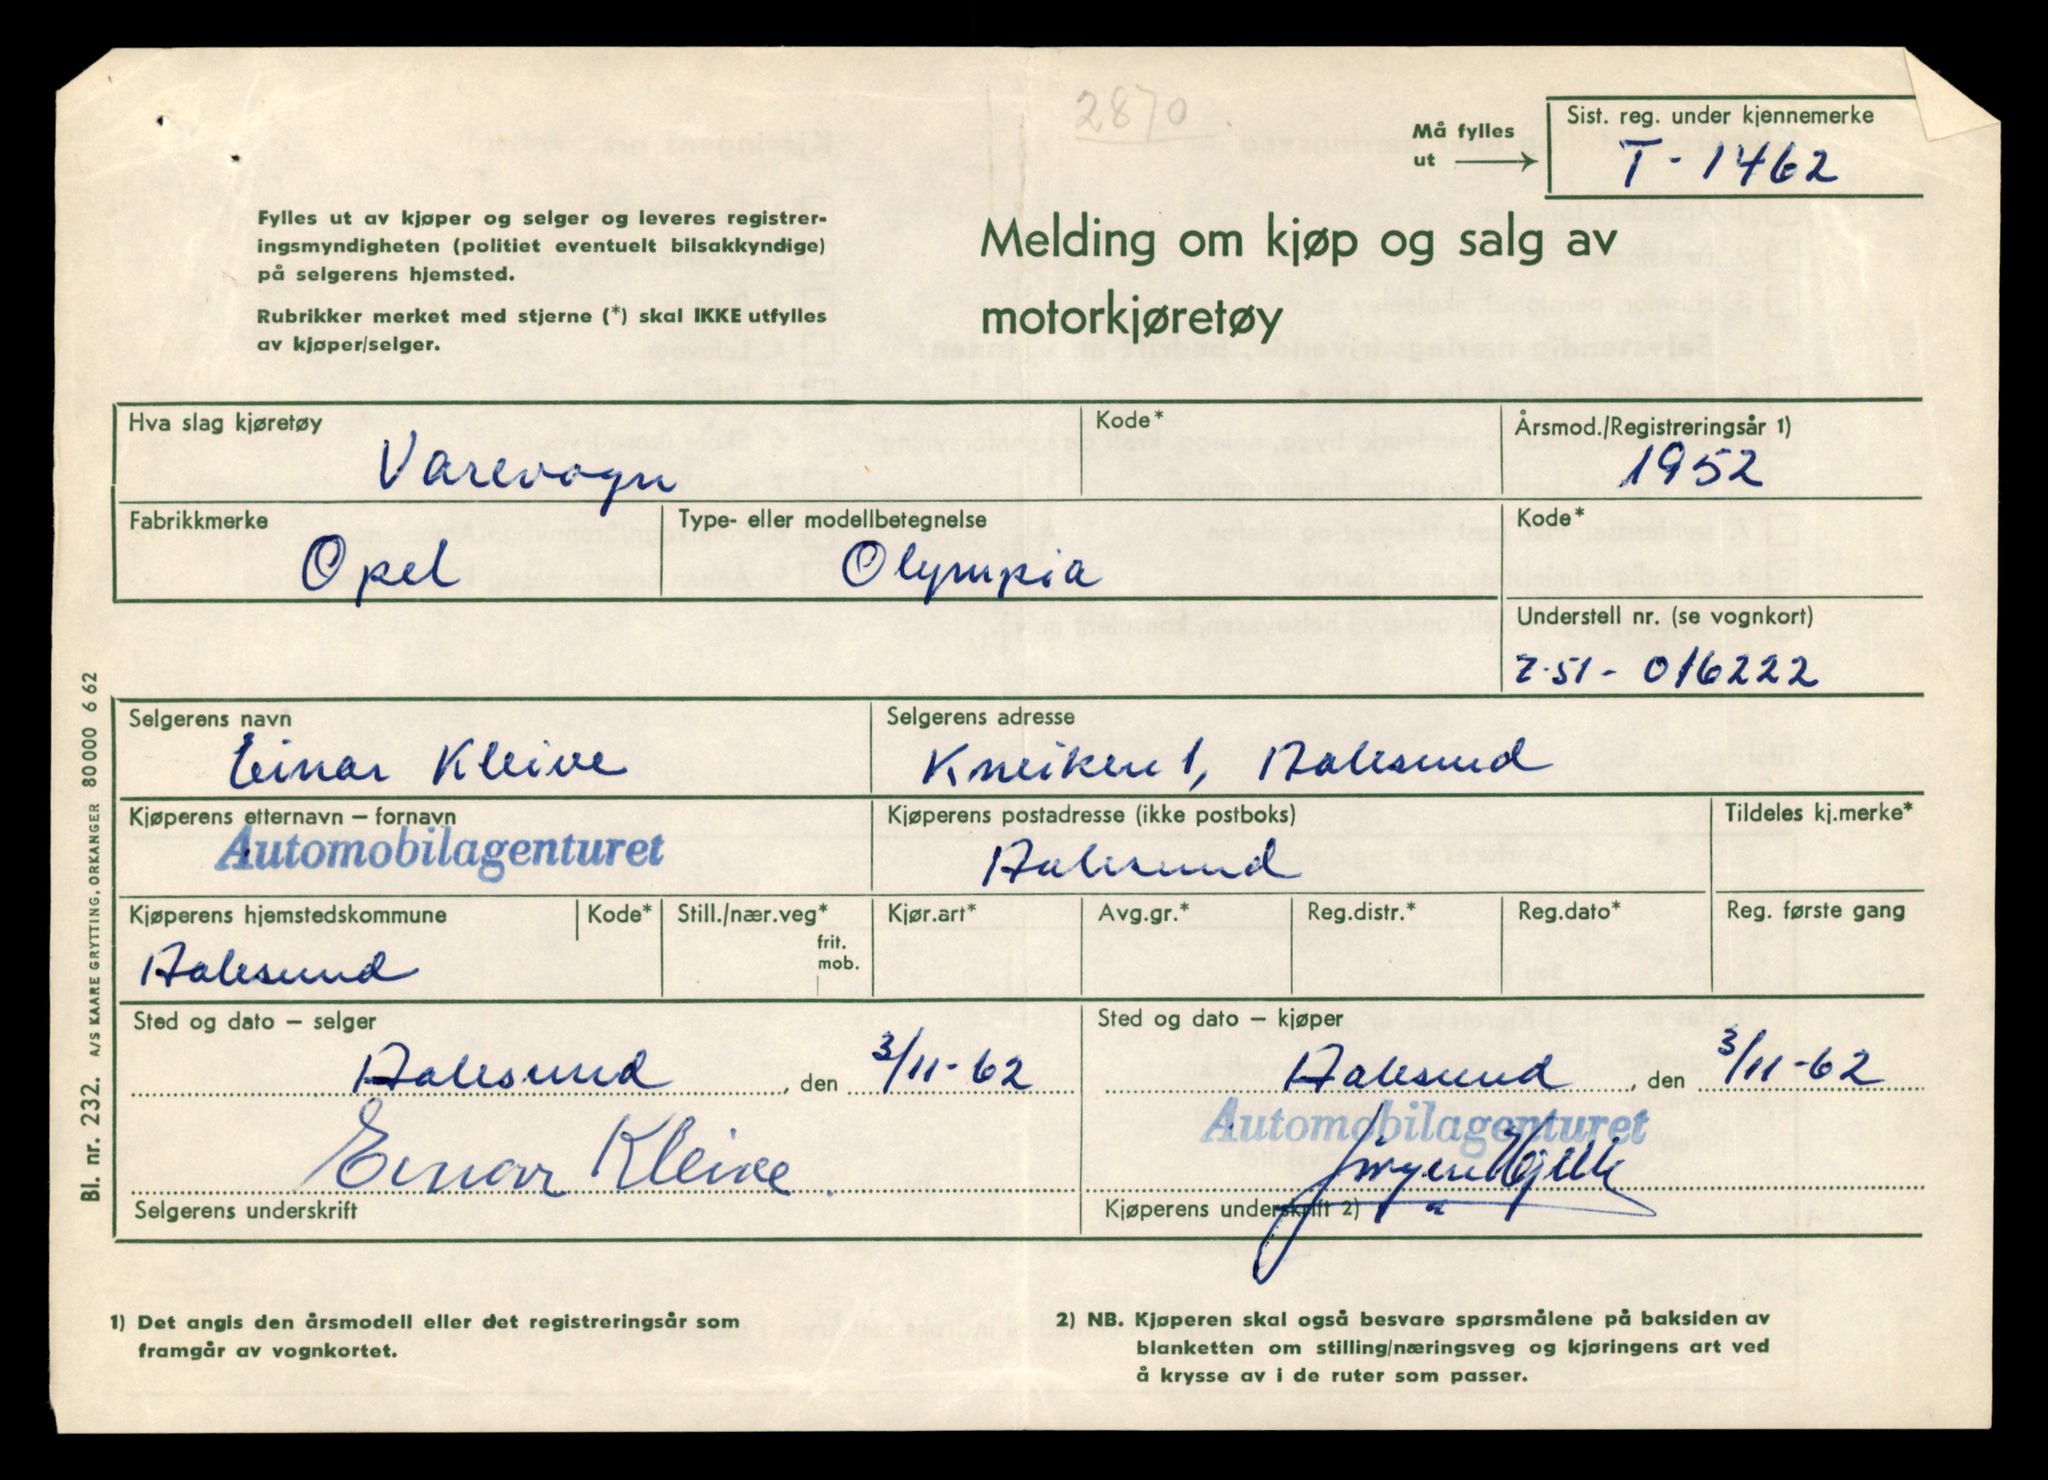 2870
Må fylles
ut
Sist. reg. under kjennemerke
T-1462
Fylles ut av kjøper og selger og leveres registrer-
ingsmyndigheten (politiet eventuelt bilsakkyndige)
på selgerens hjemsted.
Rubrikker merket med stjerne (*) skal IKKE utfylles
av kjøper/selger.
Melding om kjøp og salg av
motorkjøretøy
Hva slag kjøretøy
Varevogn
Kode*
Årsmod./Registreringsår 1)
1952
Fabrikkmerke
Opel
Type- eller modellbetegnelse
Olympia
Kode*
Understell nr. (se vognkort)
Z-51- 016222
Selgerens navn
Einar Kleive
Selgerens adresse
Kneiken 1, Aalesund
Kjøperens etternavn – fornavn
Automobilagenturet
Kjøperens postadresse (ikke postboks)
Aalesund
Tildeles kj.merke*
Kjøperens hjemstedskommune
Aalesund
Kode*
Still./nær.veg*
frit.
mob.
Kjør.art*
Avg.gr.*
Reg.distr.*
Reg.dato*
Reg. første gang
Sted og dato – selger
Aalesund, den 3/11-62
Einar Kleive
Selgerens underskrift
Sted og dato – kjøper
Aalesund, den 3/11-62
Automobilagenturet
Kjøperens underskrift 2)
1) Det angis den årsmodell eller det registreringsår som
framgår av vognkortet.
2) NB. Kjøperen skal også besvare spørsmålene på baksiden av
blanketten om stilling/næringsveg og kjøringens art ved
å krysse av i de ruter som passer.
Bl. nr. 232. A/S KAARE GRYTTING, ORKANGER 80000 6 62